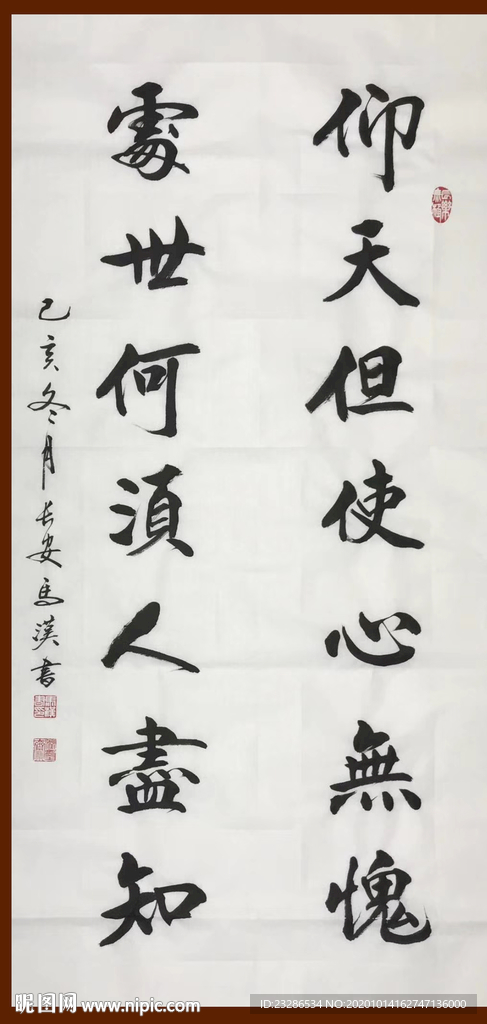 仰天但使心無愧
處世何須人盡知
己亥冬月长安馬漢書
昵图网 www.nipic.com
ID:23286534 NO:20201014162747136000